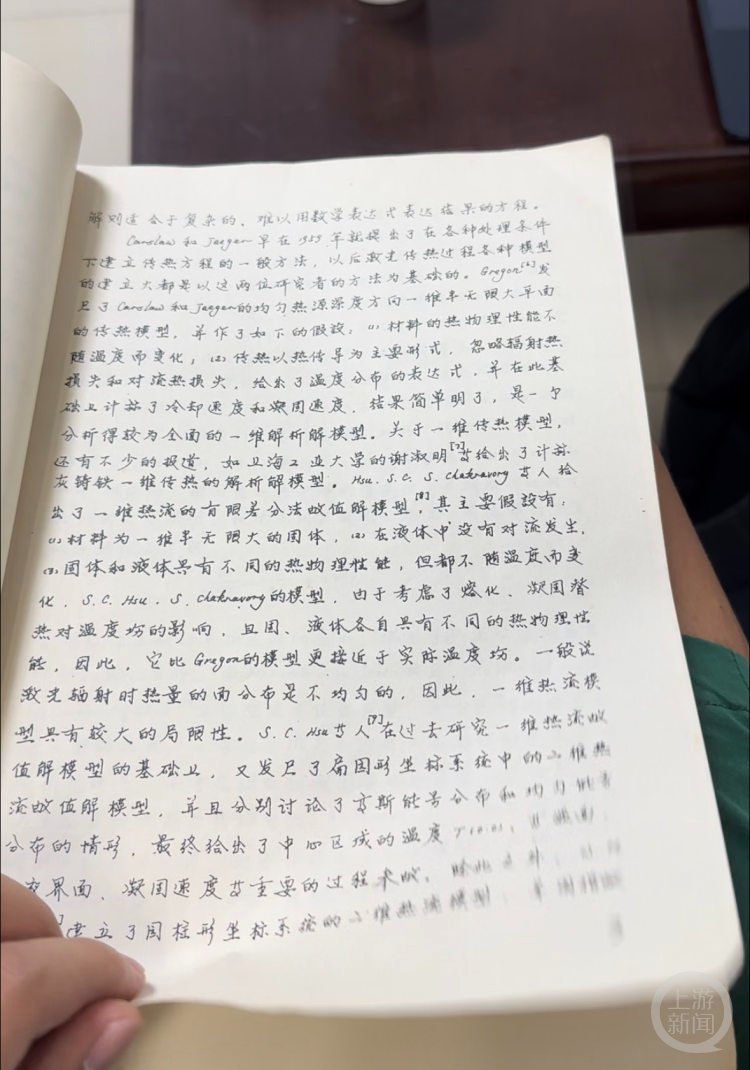 解则适合于复杂的、难以用数学表达式表达结果的方程。
Carslaw 和 Jaegen 早在 1959 年就提出了在各种处理条件
下建立传热方程的一般方法，以后激光传热过程各种模型
的建立大都是以这两位研究者的方法为基础的。Gregon[6]发
足了 Carslaw 和 Jaegen 的均匀热源深度方向一维半无限大平面
的传热模型，并作了如下的假设：(1) 材料的热物理性能不
随温度而变化；(2) 传热以热传导为主要形式，忽略辐射热
损失和对流热损失，给出了温度分布的表达式，并在此基
础上计算了冷却速度和凝固速度，结果简单明了，是一个
分析得较为全面的一维解析解模型。关于一维传热模型，
还有不少的报道，如上海工业大学的谢淑明[7]等给出了计算
灰铸铁一维传热的解析解模型。Hsu. S.C. S. Chakravory 等人给
出了一维热流的有限差分法数值解模型[8]，其主要假设有：
(1) 材料为一维半无限大的固体，(2) 在液体中没有对流发生，
(3) 固体和液体具有不同的热物理性能，但都不随温度而变
化．S.C. Hsu．S. Chakravory的模型，由于考虑了熔化、凝固潜
热对温度场的影响，且固、液体各自具有不同的热物理性
能，因此，它比 Gregon的模型更接近于实际温度场。一般说
激光辐射时热量的面分布是不均匀的，因此，一维热流模
型具有较大的局限性。S.C. Hsu等人[9]在过去研究一维热流数
值解模型的基础上，又发足了扁圆形坐标系统中的二维热
流数值解模型，并且分别讨论了高斯能量分布和均匀能量
分布的情形，最终给出了中心区域的温度 T(0.0)，
界面、凝固速度等重要的过程参数，除此之外，
]建立了圆柱形坐标系统的二维热流模型，
上游新闻